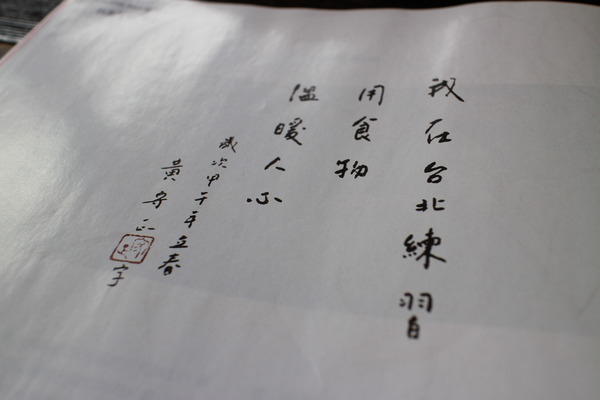 我在台北練習
用食物
溫暖人心
歲次甲午年立春
黃守正 字